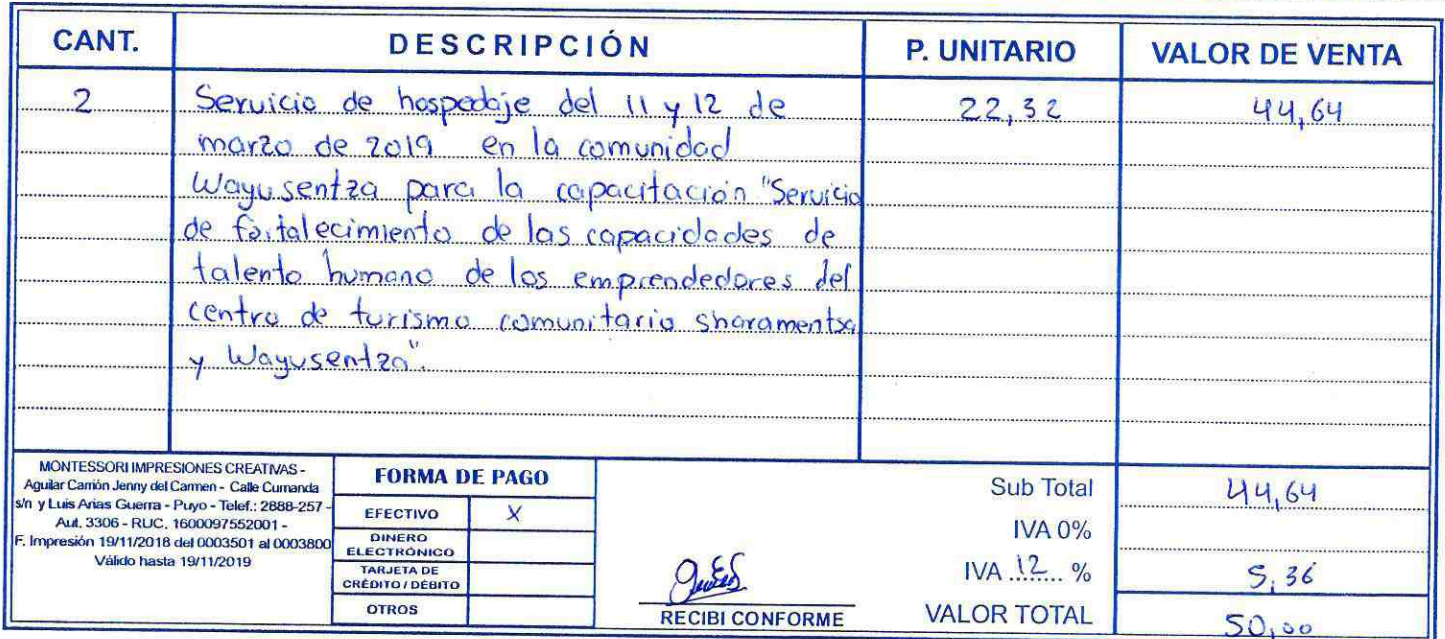 CANT. DESCRIPCIÓN P. UNITARIO VALOR DE VENTA
2 Servicio de hospedaje del 11 y 12 de 22,32 44,64
marzo de 2019 en la comunidad
Wayusentza para la capacitación "Servicio
de fortalecimiento de las capacidades de
talento humano de los emprendedores del
centro de turismo comunitario sharamentsa
y Wayusentza".
MONTESSORI IMPRESIONES CREATIVAS -
Aguilar Carrión Jenny del Carmen - Calle Cumanda
s/n y Luis Arias Guerra - Puyo - Telef.: 2888-257 -
Aut. 3306 - RUC. 1600097552001 -
F. Impresión 19/11/2018 del 0003501 al 0003800
Válido hasta 19/11/2019
FORMA DE PAGO
EFECTIVO X
DINERO
ELECTRÓNICO
TARJETA DE
CRÉDITO / DÉBITO
OTROS
RECIBI CONFORME
Sub Total 44,64
IVA 0%
IVA 12 % 5,36
VALOR TOTAL 50,00